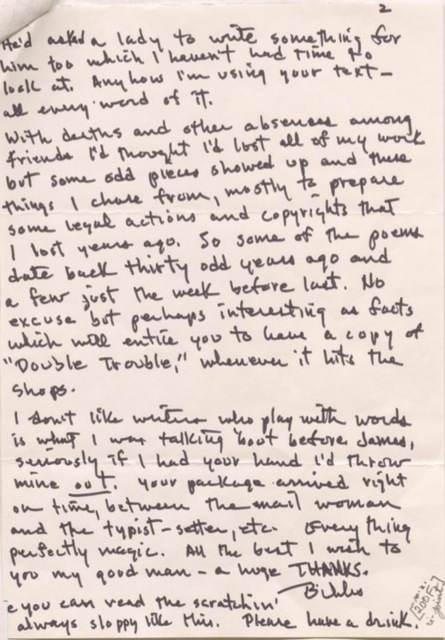 2
He'd asked a lady to write something for
him too which I haven't had time to
look at. Anyhow I'm using your text –
all every word of it.
With deaths and other absences among
friends I'd thought I'd lost all of my work
but some odd pieces showed up and these
things I chose from, mostly to prepare
some legal actions and copyrights that
I lost years ago. So some of the poems
date back thirty odd years ago and
a few just the week before last. No
excuse but perhaps interesting as facts
which will entice you to have a copy of
"Double Trouble," whenever it hits the
shops.
I don't like writers who play with words
is what I was talking 'bout before James,
seriously if I had your hand I'd throw
mine out. Your package arrived right
on time, between the mail woman
and the typist-setter, etc. Everything
perfectly magic. All the best I wish to
you my good man – a huge THANKS.
you can read the scratchin'
always sloppy like this. Please have a drink.